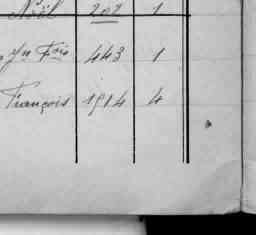 Noël 207 1
Jn Frois 443 1
François 1914 4